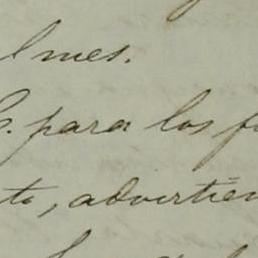 l mes.
S. para los f
to, advertien